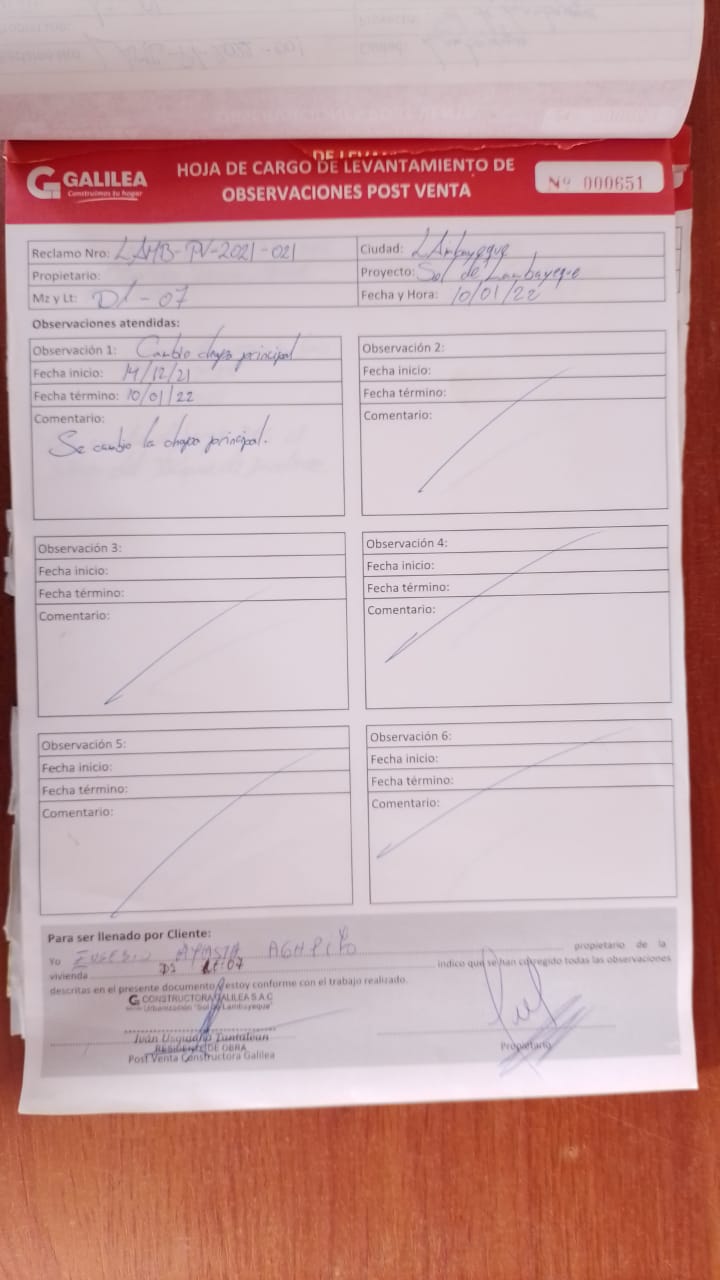 GALILEA
Construimos tu hogar
HOJA DE CARGO DE LEVANTAMIENTO DE
OBSERVACIONES POST VENTA
Nº 000651
Reclamo Nro: LAMB-PV-2021-021
Ciudad: LAmbayeque
Propietario:
Proyecto: Sol de Lambayeque
Mz y Lt: D1-07
Fecha y Hora: 10/01/22
Observaciones atendidas:
Observación 1: Cambio chapa principal
Fecha inicio: 14/12/21
Fecha término: 10/01/22
Comentario:
Se cambio la chapa principal.
Observación 2:
Fecha inicio:
Fecha término:
Comentario:
Observación 3:
Fecha inicio:
Fecha término:
Comentario:
Observación 4:
Fecha inicio:
Fecha término:
Comentario:
Observación 5:
Fecha inicio:
Fecha término:
Comentario:
Observación 6:
Fecha inicio:
Fecha término:
Comentario:
Para ser llenado por Cliente:
Yo EUSEBIO AGAPITO propietario de la
vivienda indico que se han corregido todas las observaciones
descritas en el presente documento y estoy conforme con el trabajo realizado.
CONSTRUCTORA GALILEA S.A.C
Urbanización "Sol de Lambayeque"
Iván Tantalean
RESIDENTE DE OBRA
Post Venta Constructora Galilea
Propietario